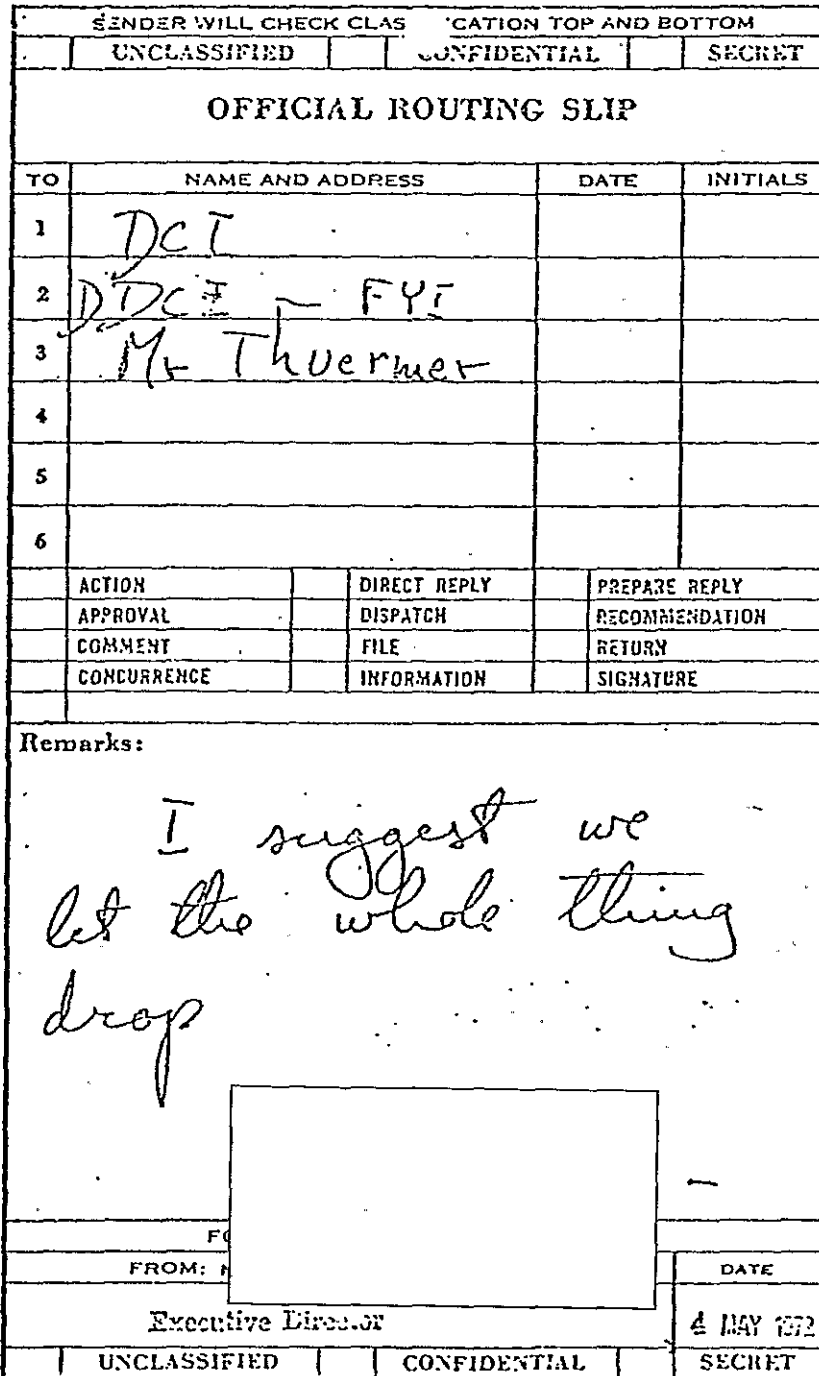 SENDER WILL CHECK CLAS 'CATION TOP AND BOTTOM
UNCLASSIFIED CONFIDENTIAL SECRET
OFFICIAL ROUTING SLIP
TO NAME AND ADDRESS DATE INITIALS
1 DCI
2 DDCI - FYI
3 Mr Thuermer
4
5
6
ACTION DIRECT REPLY PREPARE REPLY
APPROVAL DISPATCH RECOMMENDATION
COMMENT FILE RETURN
CONCURRENCE INFORMATION SIGNATURE
Remarks:
I suggest we
let the whole thing
drop
FO
FROM: N DATE
Executive Director 4 MAY 1972
UNCLASSIFIED CONFIDENTIAL SECRET